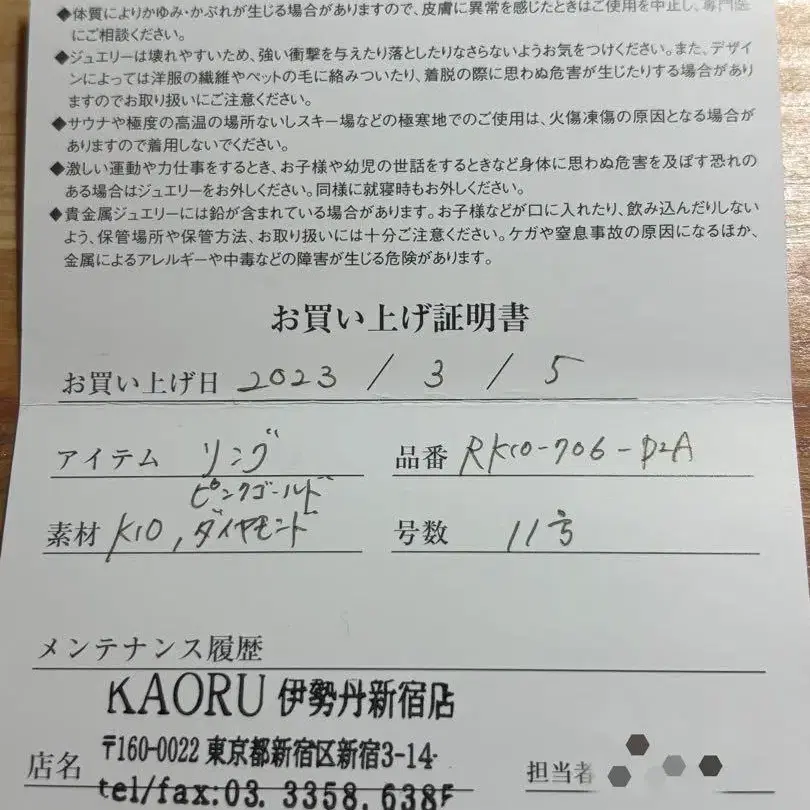 ◆体質によりかゆみ・かぶれが生じる場合がありますので、皮膚に異常を感じたときはご使用を中止し、専門医
にご相談ください。
◆ジュエリーは壊れやすいため、強い衝撃を与えたり落としたりなさらないようお気をつけください。また、デザイ
ンによっては洋服の繊維やペットの毛に絡みついたり、着脱の際に思わぬ危害が生じたりする場合があり
ますのでお取り扱いにご注意ください。
◆サウナや極度の高温の場所ないしスキー場などの極寒地でのご使用は、火傷凍傷の原因となる場合が
ありますので着用しないでください。
◆激しい運動や力仕事をするとき、お子様や幼児の世話をするときなど身体に思わぬ危害を及ぼす恐れの
ある場合はジュエリーをお外しください。同様に就寝時もお外しください。
◆貴金属ジュエリーには鉛が含まれている場合があります。お子様などが口に入れたり、飲み込んだりしない
よう、保管場所や保管方法、お取り扱いには十分ご注意ください。ケガや窒息事故の原因になるほか、
金属によるアレルギーや中毒などの障害が生じる危険があります。
お買い上げ証明書
お買い上げ日 2023 / 3 / 5
アイテム リング 品番 RK10-706-D2A
ピンクゴールド
素材 K10, ダイヤモンド 号数 11号
メンテナンス履歴
KAORU 伊勢丹新宿店
〒160-0022 東京都新宿区新宿3-14-
店名 担当者
tel/fax:03. 3358. 6385